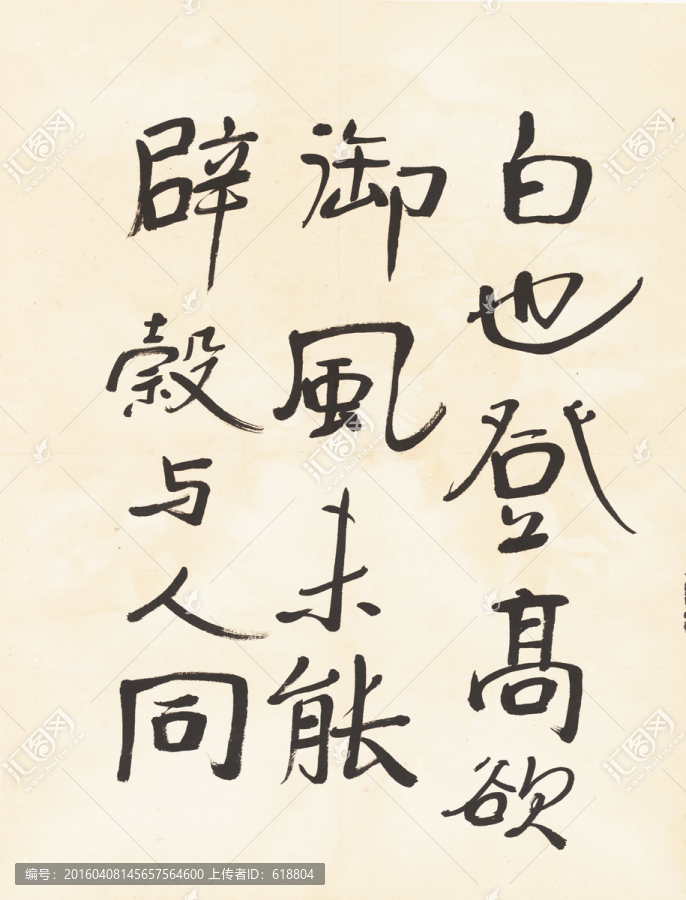 白也登髙欲
御風未能
辟穀与人同
汇图网
www.huitu.com
编号：20160408145657564600 上传者ID：618804